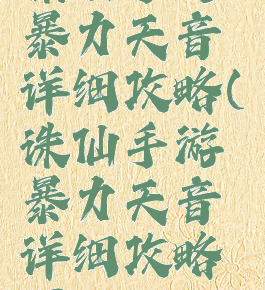 暴力天音
详细攻略(
诛仙手游
暴力天音
详细攻略